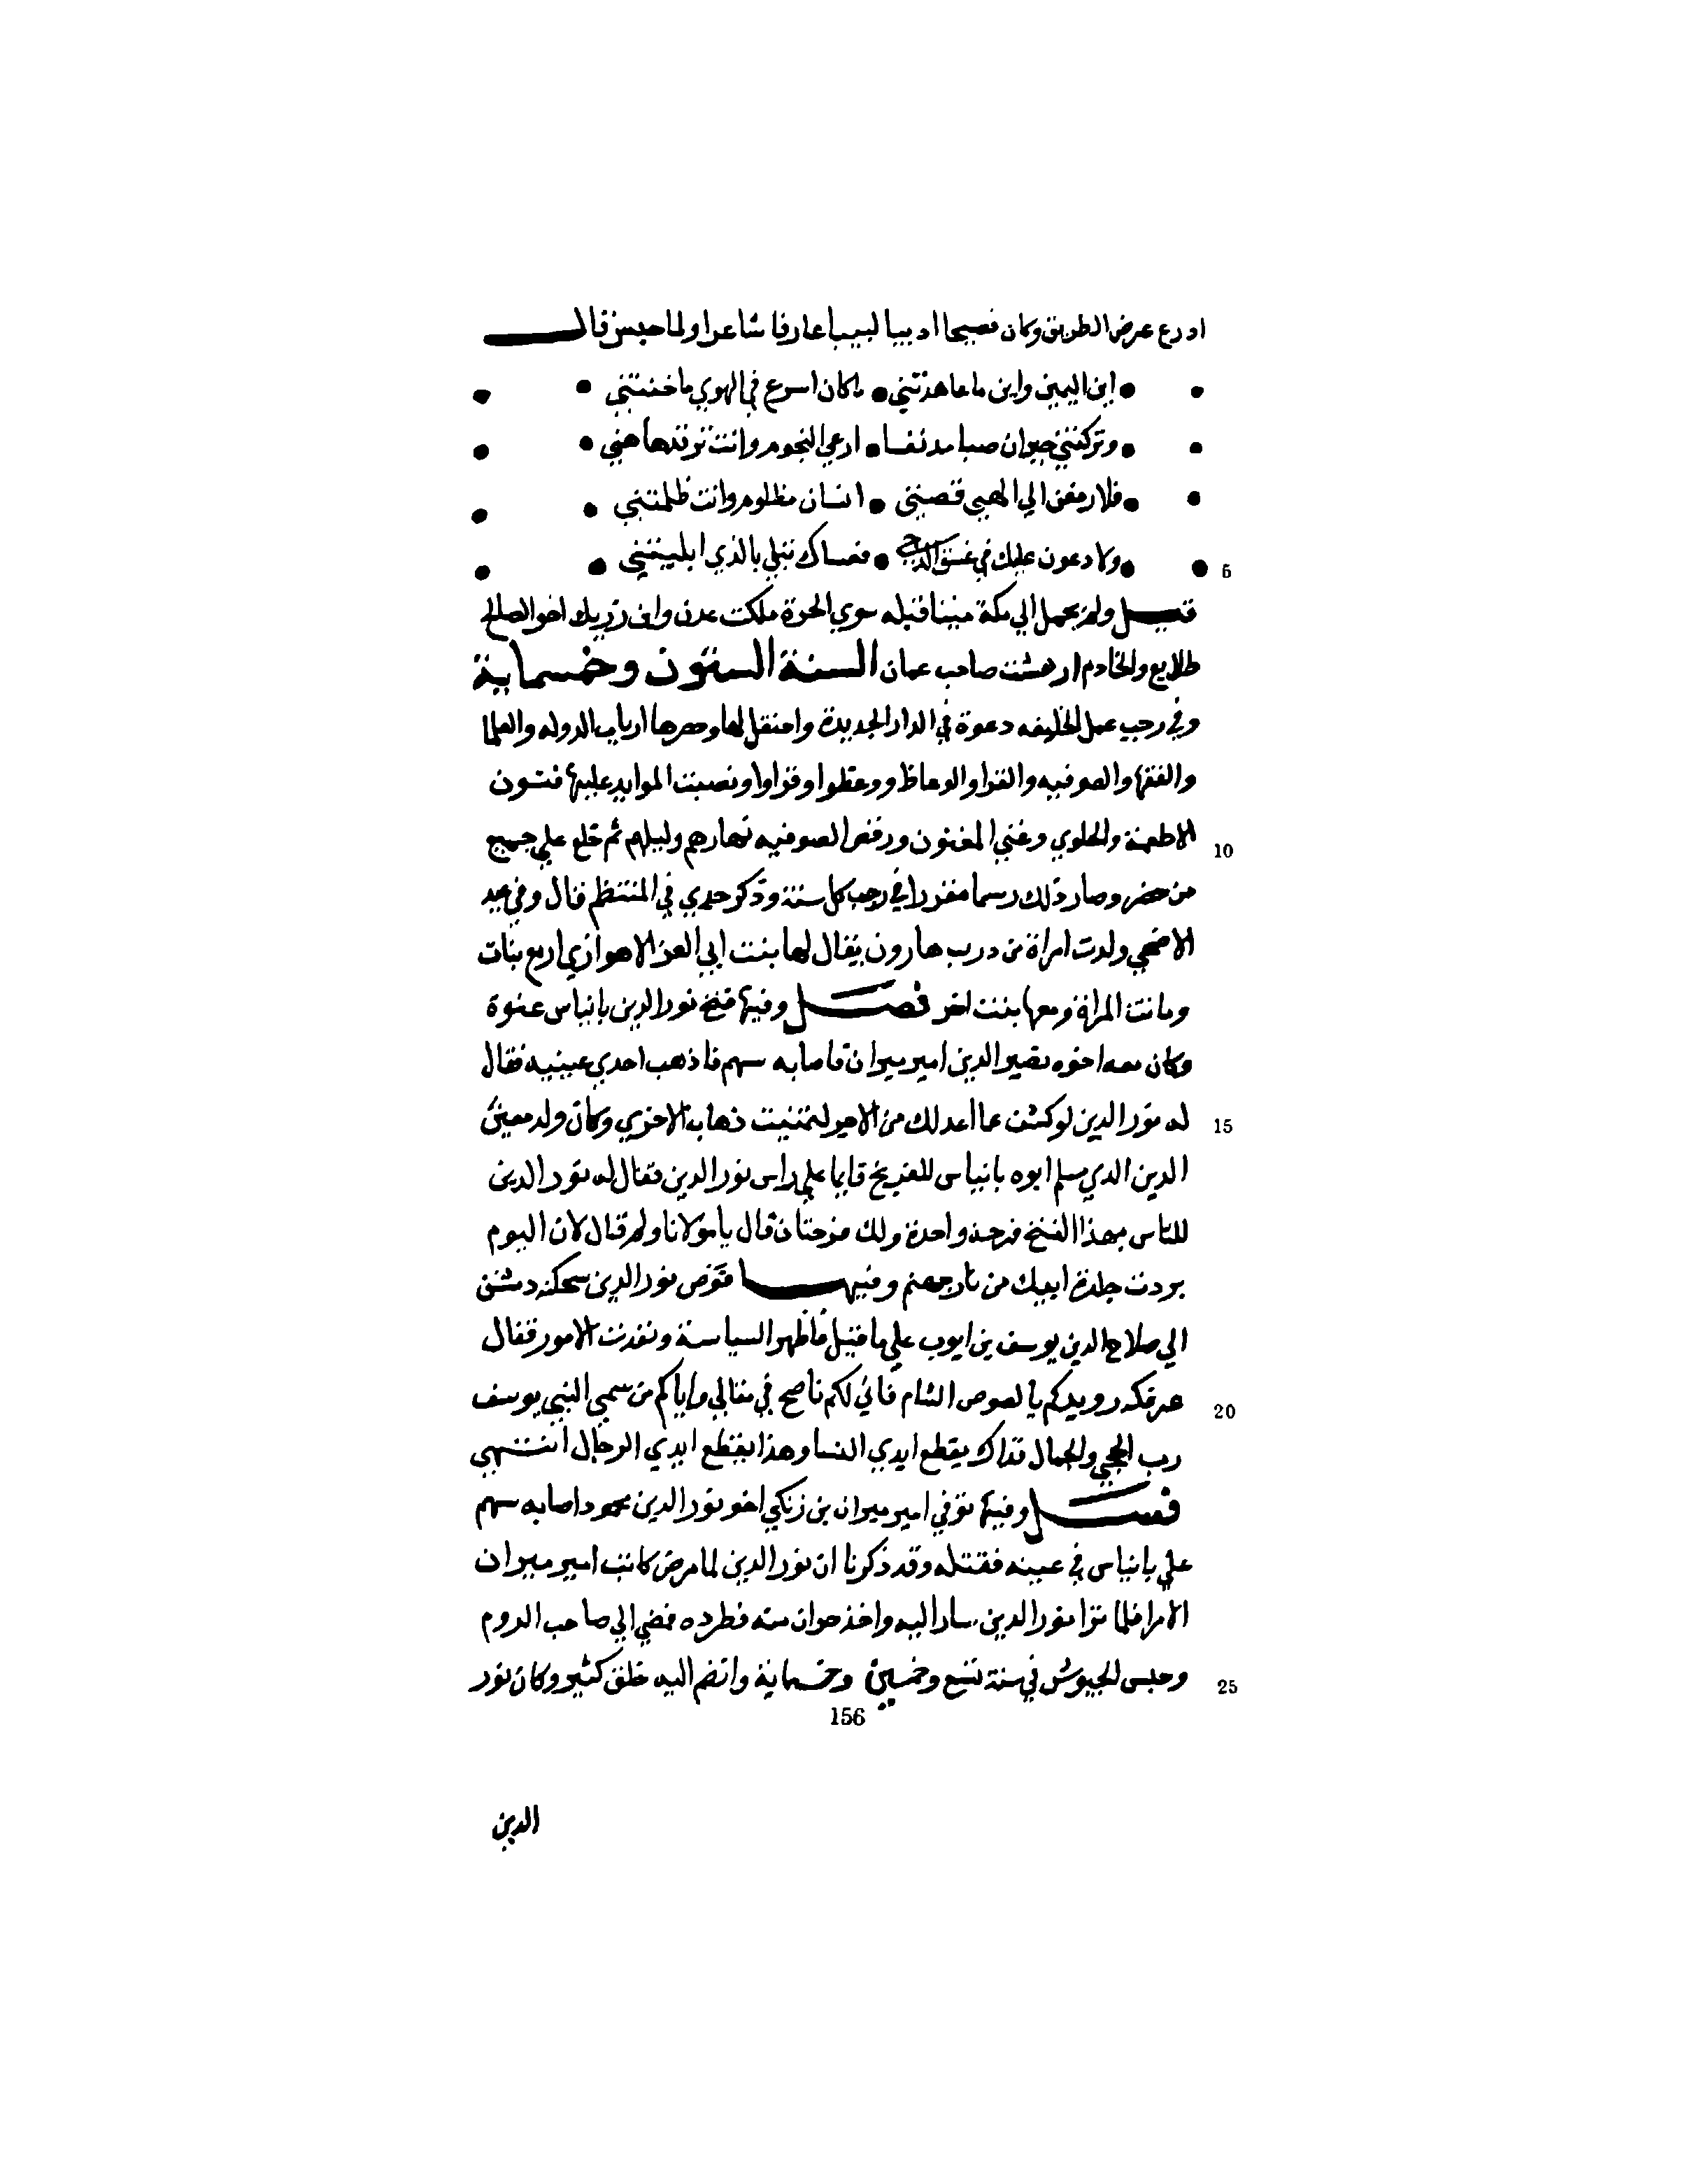 ادرع عرض الطريق وكان فصيحا اديبا لبيبا عارفا شاعرا ولما حبس قال
اين اليمين واين ما عاهدتني • ما كان اسرع في الهوي ما خنتني
وتركتني حيران صبا مدنفا • ارعي النجوم وانت ترقدها هني
فلارفعن الي الهي قصتي • انسان مظلوم وانت ظلمتني
5 ولادعون عليك في غسق الدجي • فعساك تبلي بالذي ابليتني
قيل ولم يحمل الي مكة ميتا قبله سوي الحرة ملكت عدن وابن رزيك اخو الصالح
طلايع والخادم ارهشت صاحب عمان السنة الستون وخمسماية
وفي رجب عمل الخليفه دعوة في الدار الجديدة واحتفل لها وحضرها ارباب الدوله والعلما
والفقها والصوفيه والقرا والوعاظ ووعظوا وقراوا ونصبت الموايد عليها فنون
10 الاطعمة والحلوي وغني المغنون ورقص الصوفيه نهارهم وليلهم ثم خلع علي جميع
من حضر وصار ذلك رسما مقررا في رجب كل سنة وذكر جدي في المنتظم قال وفي عيد
الاضحي ولدت امراة من درب هارون يقال لها بنت ابي العز الاهوازي اربع بنات
وماتت المراة ومعها بنت اخر فصل وفيها فتح نور الدين بانياس عنوة
وكان معه اخوه نصير الدين امير ميران فاصابه سهم فاذهب احدي عينيه فقال
15 له نور الدين لو كشف عما اعد لك من الاجر لتمنيت ذهاب الاخري وكان ولد معين
الدين الذي سلم ابوه بانياس للفرنج قايما علي راس نور الدين فقال له نور الدين
للناس بهذا الفتح فرحة واحدة ولك فرحتان قال يا مولانا ولم قال لان اليوم
بردت جلدة ابيك من نار جهنم وفيها فوض نور الدين شحكنه دمشق
الي صلاح الدين يوسف بن ايوب علي ما قيل فاظهر السياسة ونفدت الامور فقال
20 عرقله رويدكم يا لصوص الشام فاني لكم ناصح في مقالي واياكم من سمي النبي يوسف
رب الحجي والجمال فذاك يقطع ايدي النسا وهذا يقطع ايدي الرجال انتهي
فصل وفيها توفي امير ميران بن زنكي اخو نور الدين محمود اصابه سهم
علي بانياس في عينه فقتله وقد ذكرنا ان نور الدين لما مرض كاتب امير ميران
الامرا فلما برا نور الدين سار اليه واخذ حران منه فطرده فمضي الي صاحب الروم
25 وحبس الجيوش في سنة تسع وخمسين وخمسماية وانضم اليه خلق كثير وكان نور
156
الدين